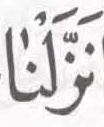 نَزَّلْنَا